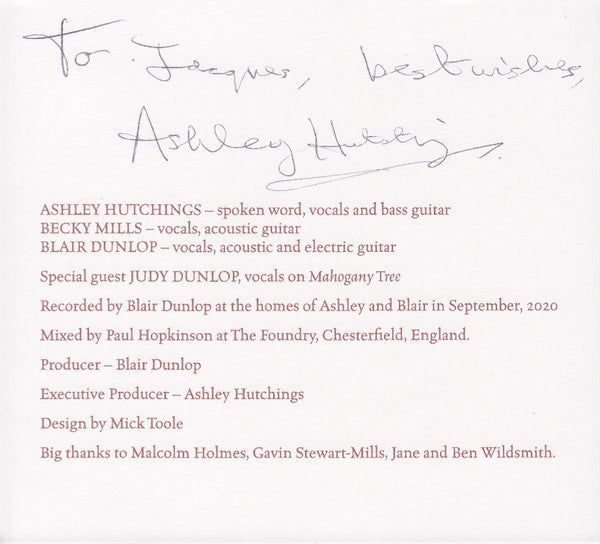 To Jacques, best wishes,
Ashley Hutchings.
ASHLEY HUTCHINGS – spoken word, vocals and bass guitar
BECKY MILLS – vocals, acoustic guitar
BLAIR DUNLOP – vocals, acoustic and electric guitar
Special guest JUDY DUNLOP, vocals on Mahogany Tree
Recorded by Blair Dunlop at the homes of Ashley and Blair in September, 2020
Mixed by Paul Hopkinson at The Foundry, Chesterfield, England.
Producer – Blair Dunlop
Executive Producer – Ashley Hutchings
Design by Mick Toole
Big thanks to Malcolm Holmes, Gavin Stewart-Mills, Jane and Ben Wildsmith.